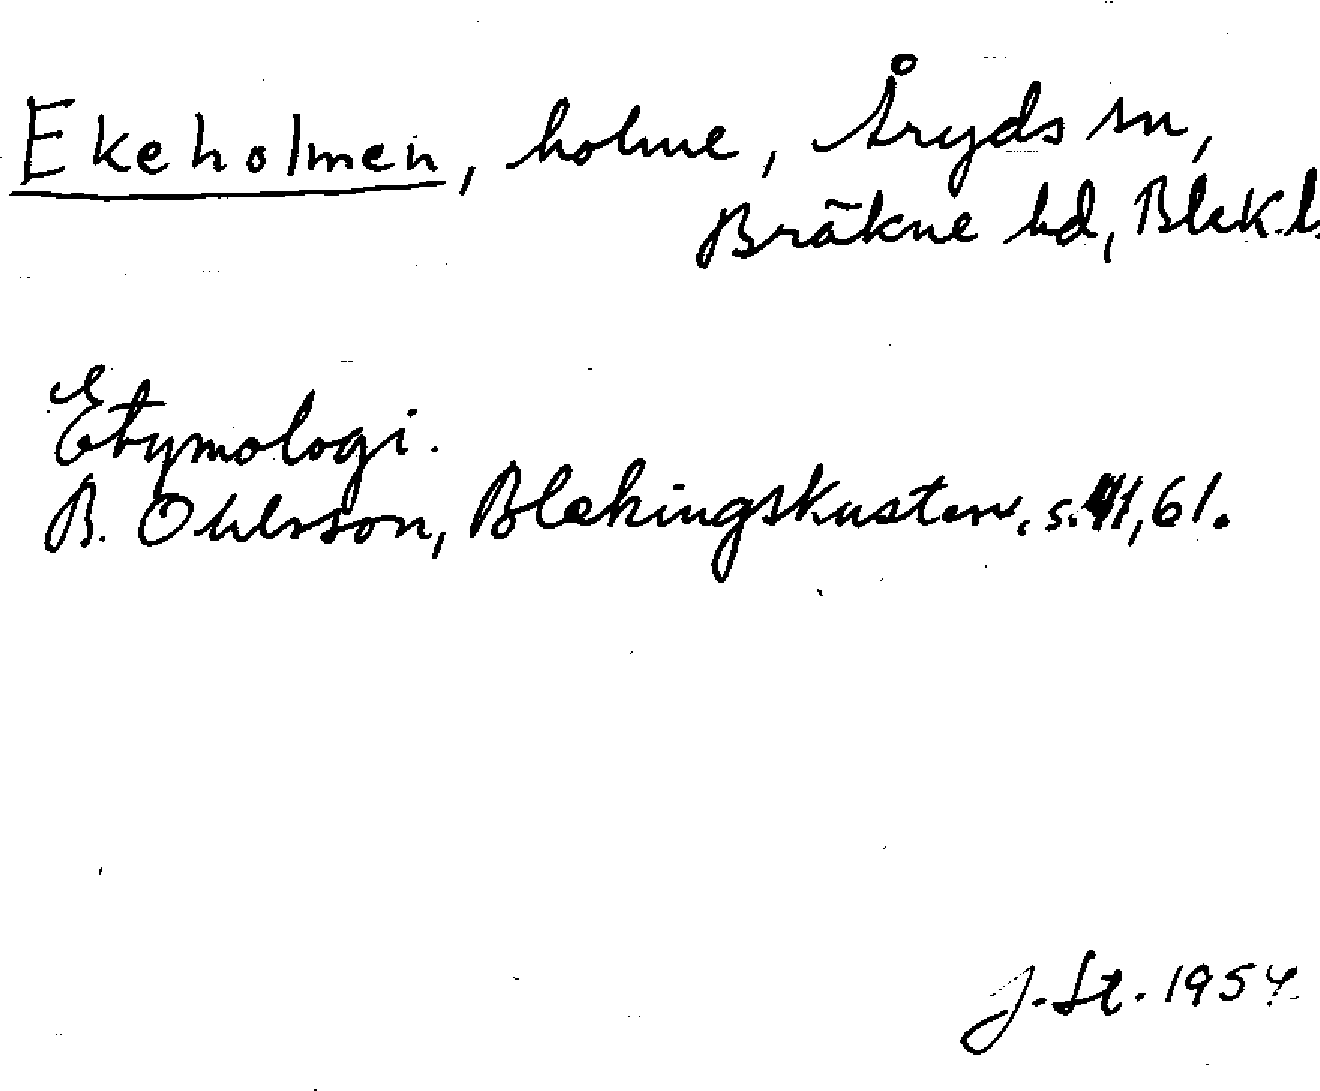 Ekeholmen, holme, Åryds sn,
Bräkne hd, Blek.l.
Etymologi.
B. Ohlsson, Blekingskusten, s. 41, 61.
J. St. 1954